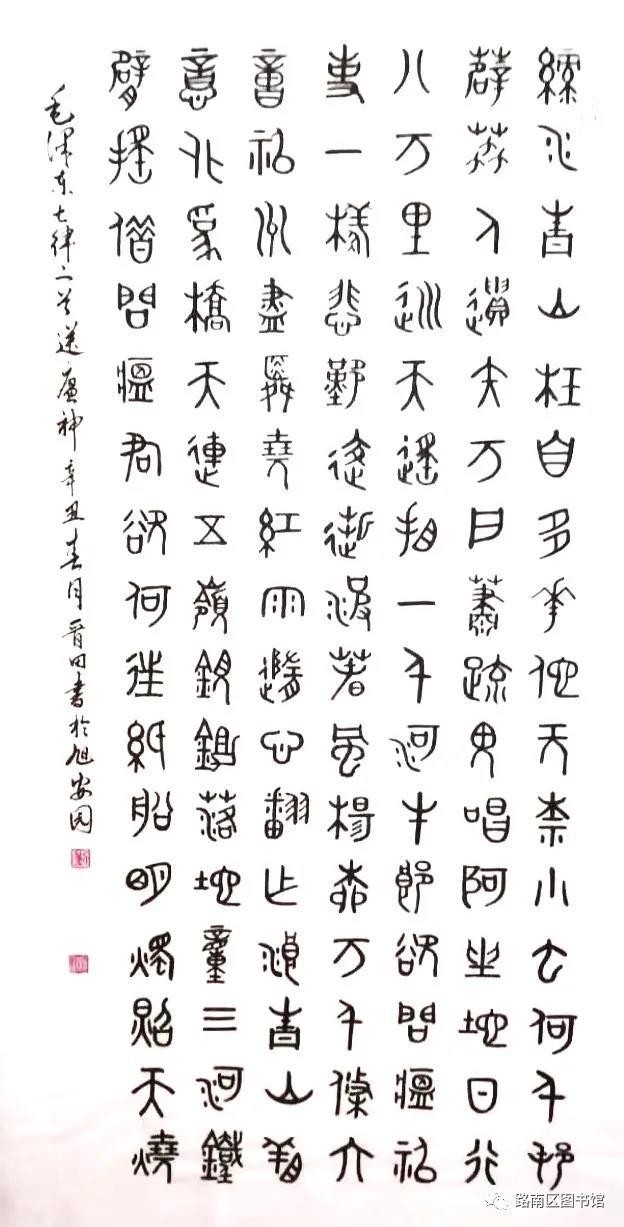 綠水青山枉自多華佗无奈小虫何千村
薜荔人遺矢万戶蕭疏鬼唱歌坐地日行
八万里巡天遥看一千河牛郎欲問瘟神
事一樣悲歡逐逝波春風楊柳万千條六
億神州盡舜堯紅雨隨心翻作浪青山着
意化為橋天連五嶺銀鋤落地動三河鐵
臂摇借問瘟君欲何往紙船明燭照天燒
毛澤东七律二首送瘟神 辛丑春月晋田書於旭安园
路南区图书馆